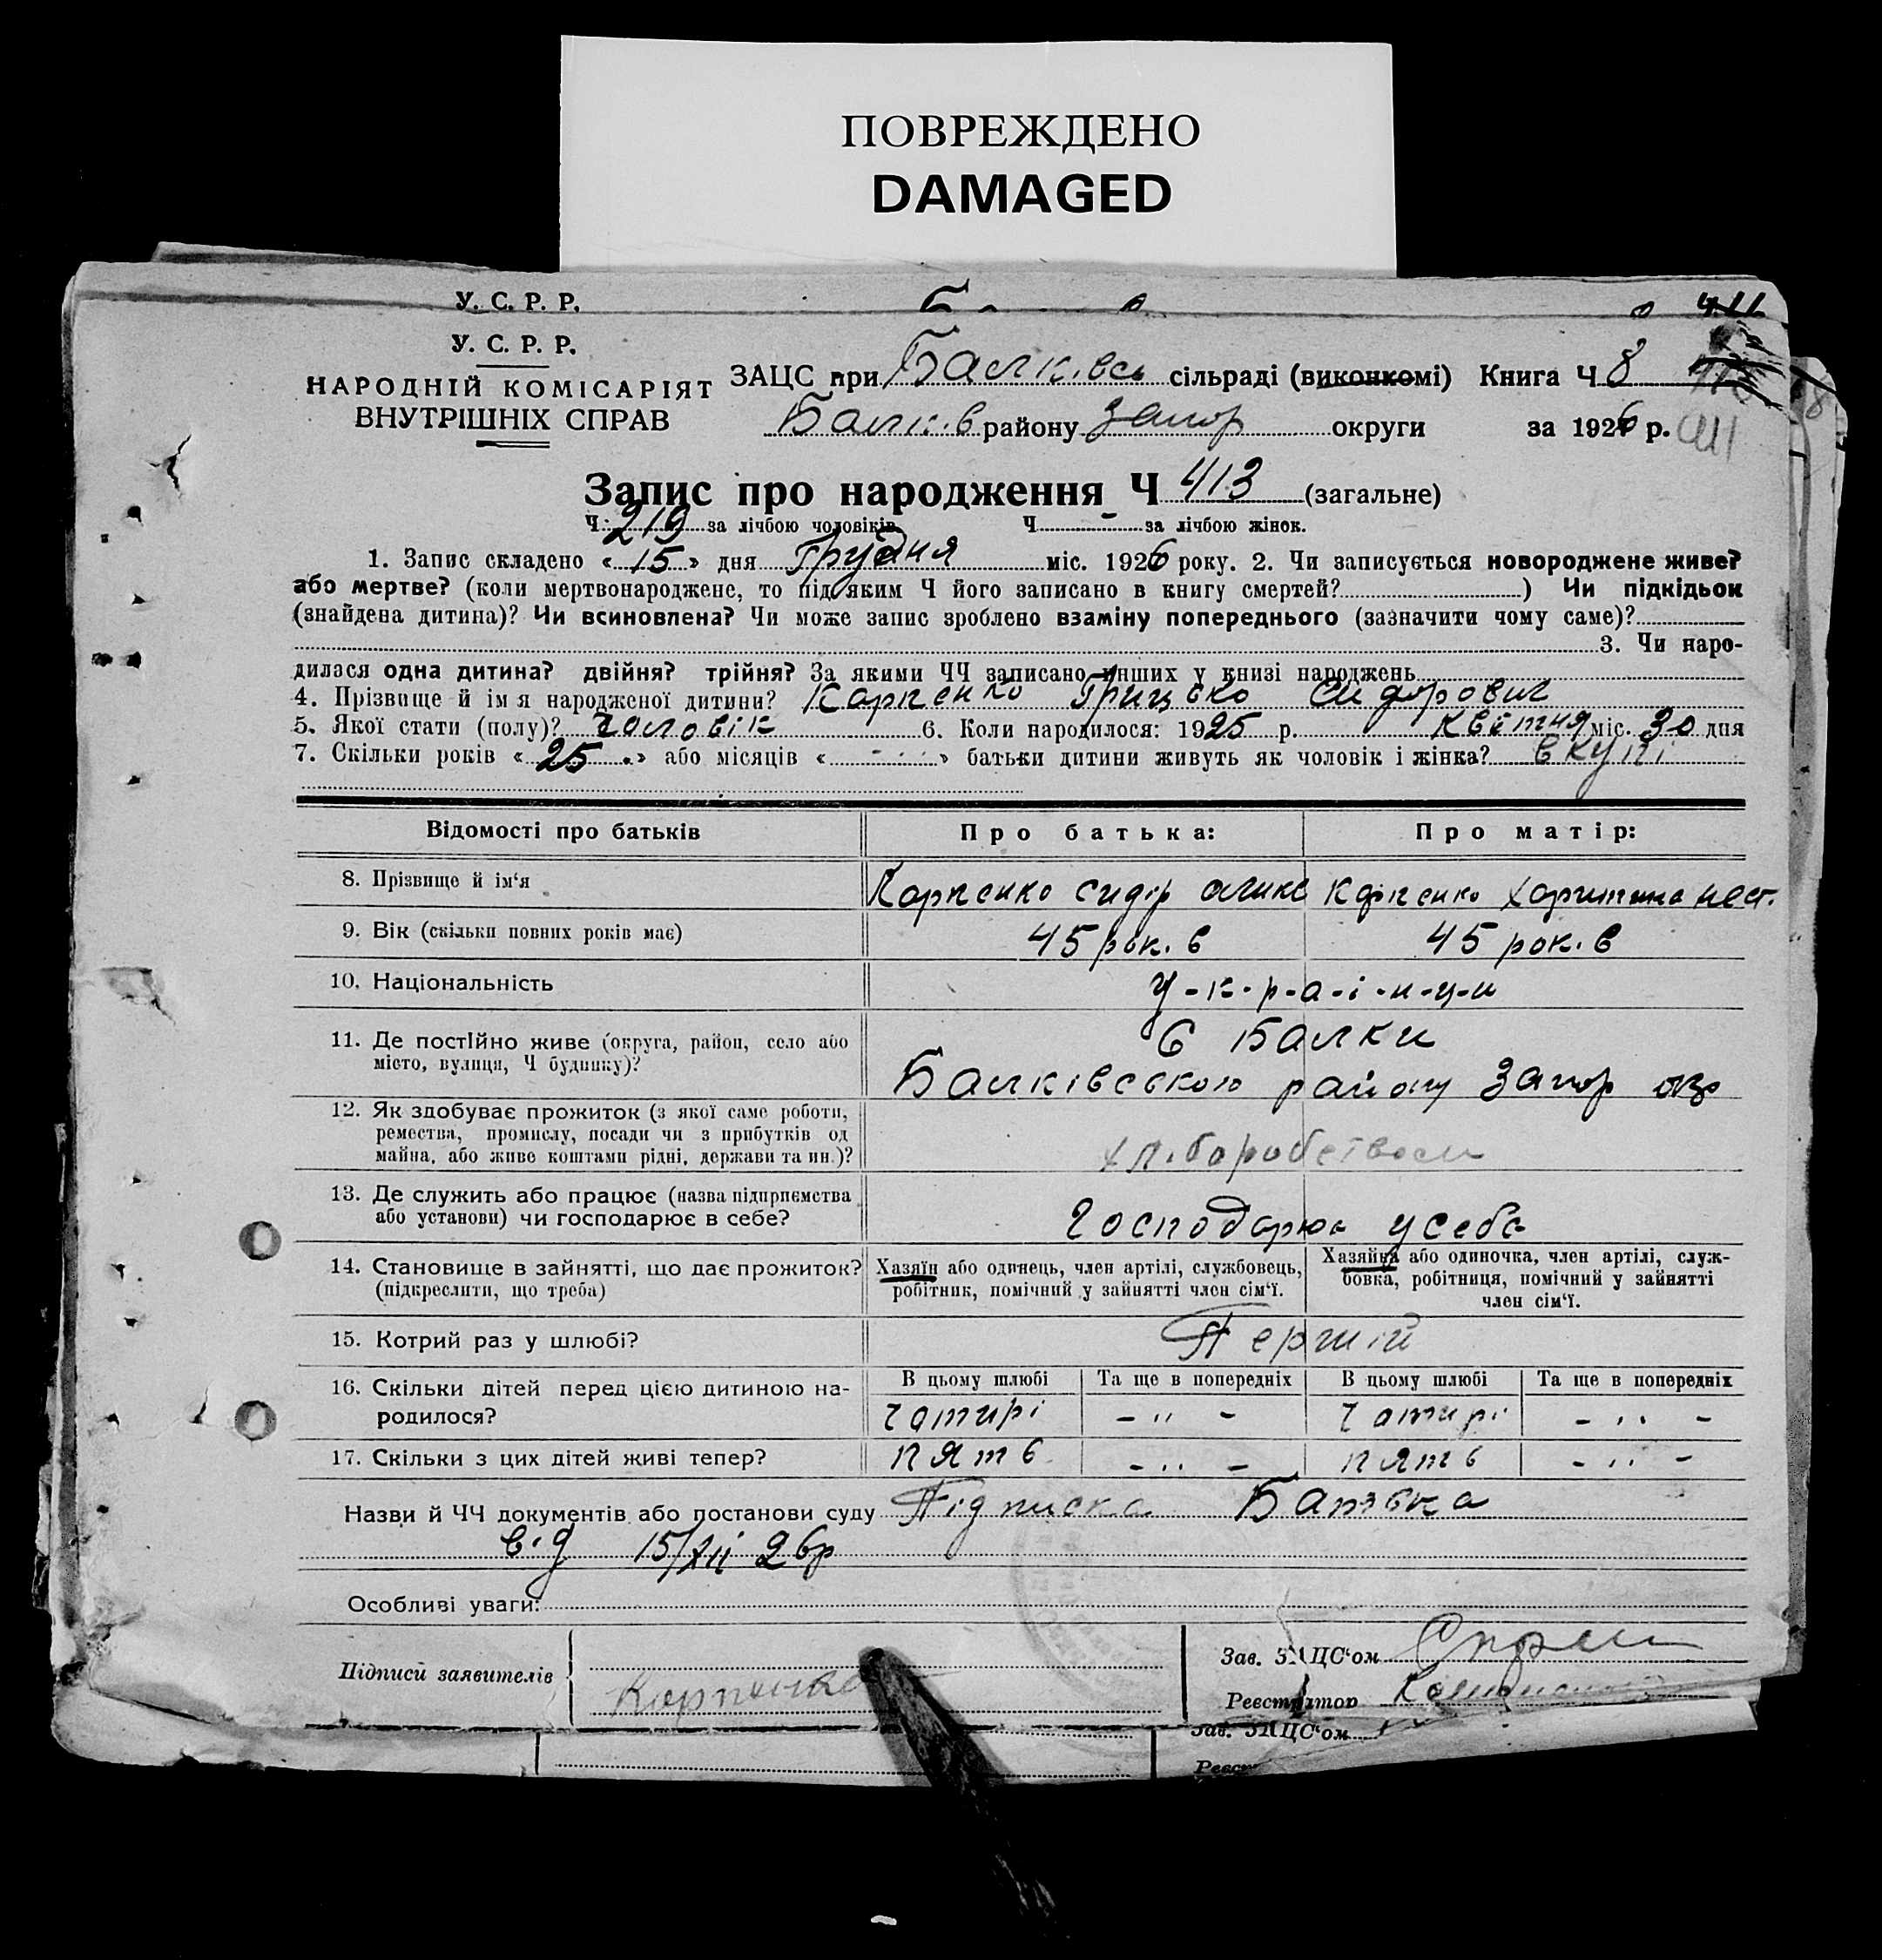 ПОВРЕЖДЕНО
DAMAGED
У. С. Р. Р.
У. С. Р. Р.
НАРОДНІЙ КОМІСАРІЯТ
ВНУТРІШНІХ СПРАВ
ЗАЦС при Балківсь сільраді (виконкомі) Книга Ч 8
Балк.в району Запор округи за 1926 р. 411
Запис про народження Ч 413 (загальне)
Ч 219 за лічбою чоловіків Ч - за лічбою жінок.
1. Запис складено « 15 » дня Грудня міс. 1926 року. 2. Чи записується новороджене живе?
або мертве? (коли мертвонароджене, то під яким Ч його записано в книгу смертей? ) Чи підкідьок
(знайдена дитина)? Чи всиновлена? Чи може запис зроблено взаміну попереднього (зазначити чому саме)?
3. Чи наро-
дилася одна дитина? двійня? трійня? За якими ЧЧ записано инших у книзі народжень
4. Прізвище й ім я народженої дитини? Карпенко Грицько Сидорович
5. Якої стати (полу)? чоловік 6. Коли народилося: 1925 р. Квітня міс. 30 дня
7. Скільки років « 25 » або місяців « - » батьки дитини живуть як чоловік і жінка? вкупі
Відомості про батьків Про батька: Про матір:
8. Прізвище й ім‘я Карпенко Сидір Карпенко Харитина Нест.
9. Вік (скільки повних років має) 45 рок.в 45 рок.в
10. Національність У-к-р-а-і-н-ц-и
11. Де постійно живе (округа, район, село або
місто, вулиця, Ч будинку)?
С Балки
Балківського району Запор окр
12. Як здобуває прожиток (з якої саме роботи,
ремества, промислу, посади чи з прибутків од
майна, або живе коштами рідні, держави та ин.)?
хліборобством
13. Де служить або працює (назва підприємства
або установи) чи господарює в себе?
Господарює усебе
14. Становище в зайнятті, що дає прожиток?
(підкреслити, що треба)
Хазяїн або одинець, член артілі, службовець,
робітник, помічний у зайнятті член сім‘ї.
Хазяйка або одиночка, член артілі, служ-
бовка, робітниця, помічний у зайнятті
член сім‘ї.
15. Котрий раз у шлюбі? Перший
16. Скільки дітей перед цією дитиною на-
родилося?
В цьому шлюбі Та ще в попередніх В цьому шлюбі Та ще в попередніх
чотирі - " - чотирі - " -
17. Скільки з цих дітей живі тепер? пять - " - пять - " -
Назви й ЧЧ документів або постанови суду Підписка Батька
від 15/XII 26р
Особливі уваги:
Підписи заявителів Карпенко
Зав. ЗАЦС‘ом
Реєстратор
Зав. ЗАЦС‘ом